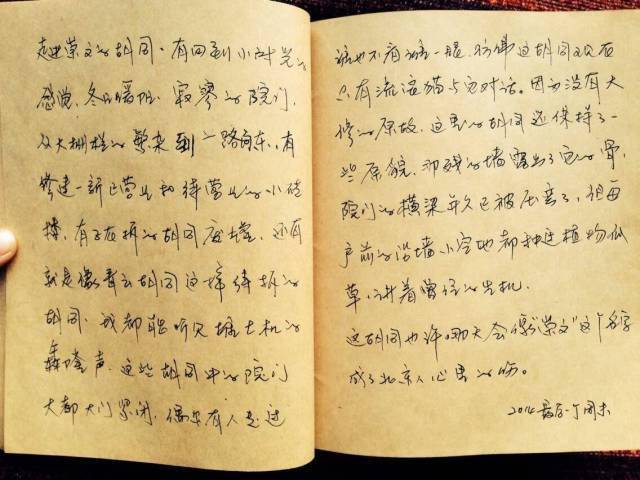 走进崇文的胡同，有回到小时光的
感觉，冬日暖阳，寂寥的院门，
从大栅栏的繁杂到一路向东，有
修建一新正营业和待营业的小砖
楼，有正在拆的胡同废墟，还有
就是像青云胡同这样待拆的
胡同，我都能听见挖土机的
轰隆声。这些胡同中的院门
大都大门紧闭，偶尔有人走过
谁也不看谁一眼，仿佛这胡同现在
只有流浪猫与它对话。因为没有大
修的原故，这里的胡同还保持了一
些原貌，那残的墙露出了它的骨，
院门的横梁年久已被压弯了，但每
户前的沿墙小空地都种过植物低
草，讲着曾经的生机。
这胡同也许哪天会像"崇文"这个名字
成了北京人心里的伤。
2014最后一个周末